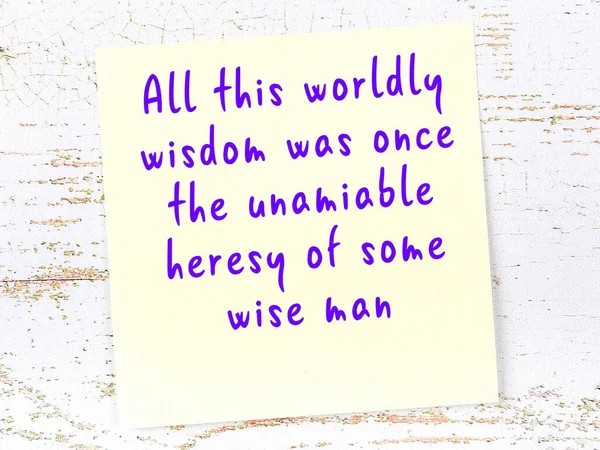 All this worldly
wisdom was once
the unamiable
heresy of some
wise man